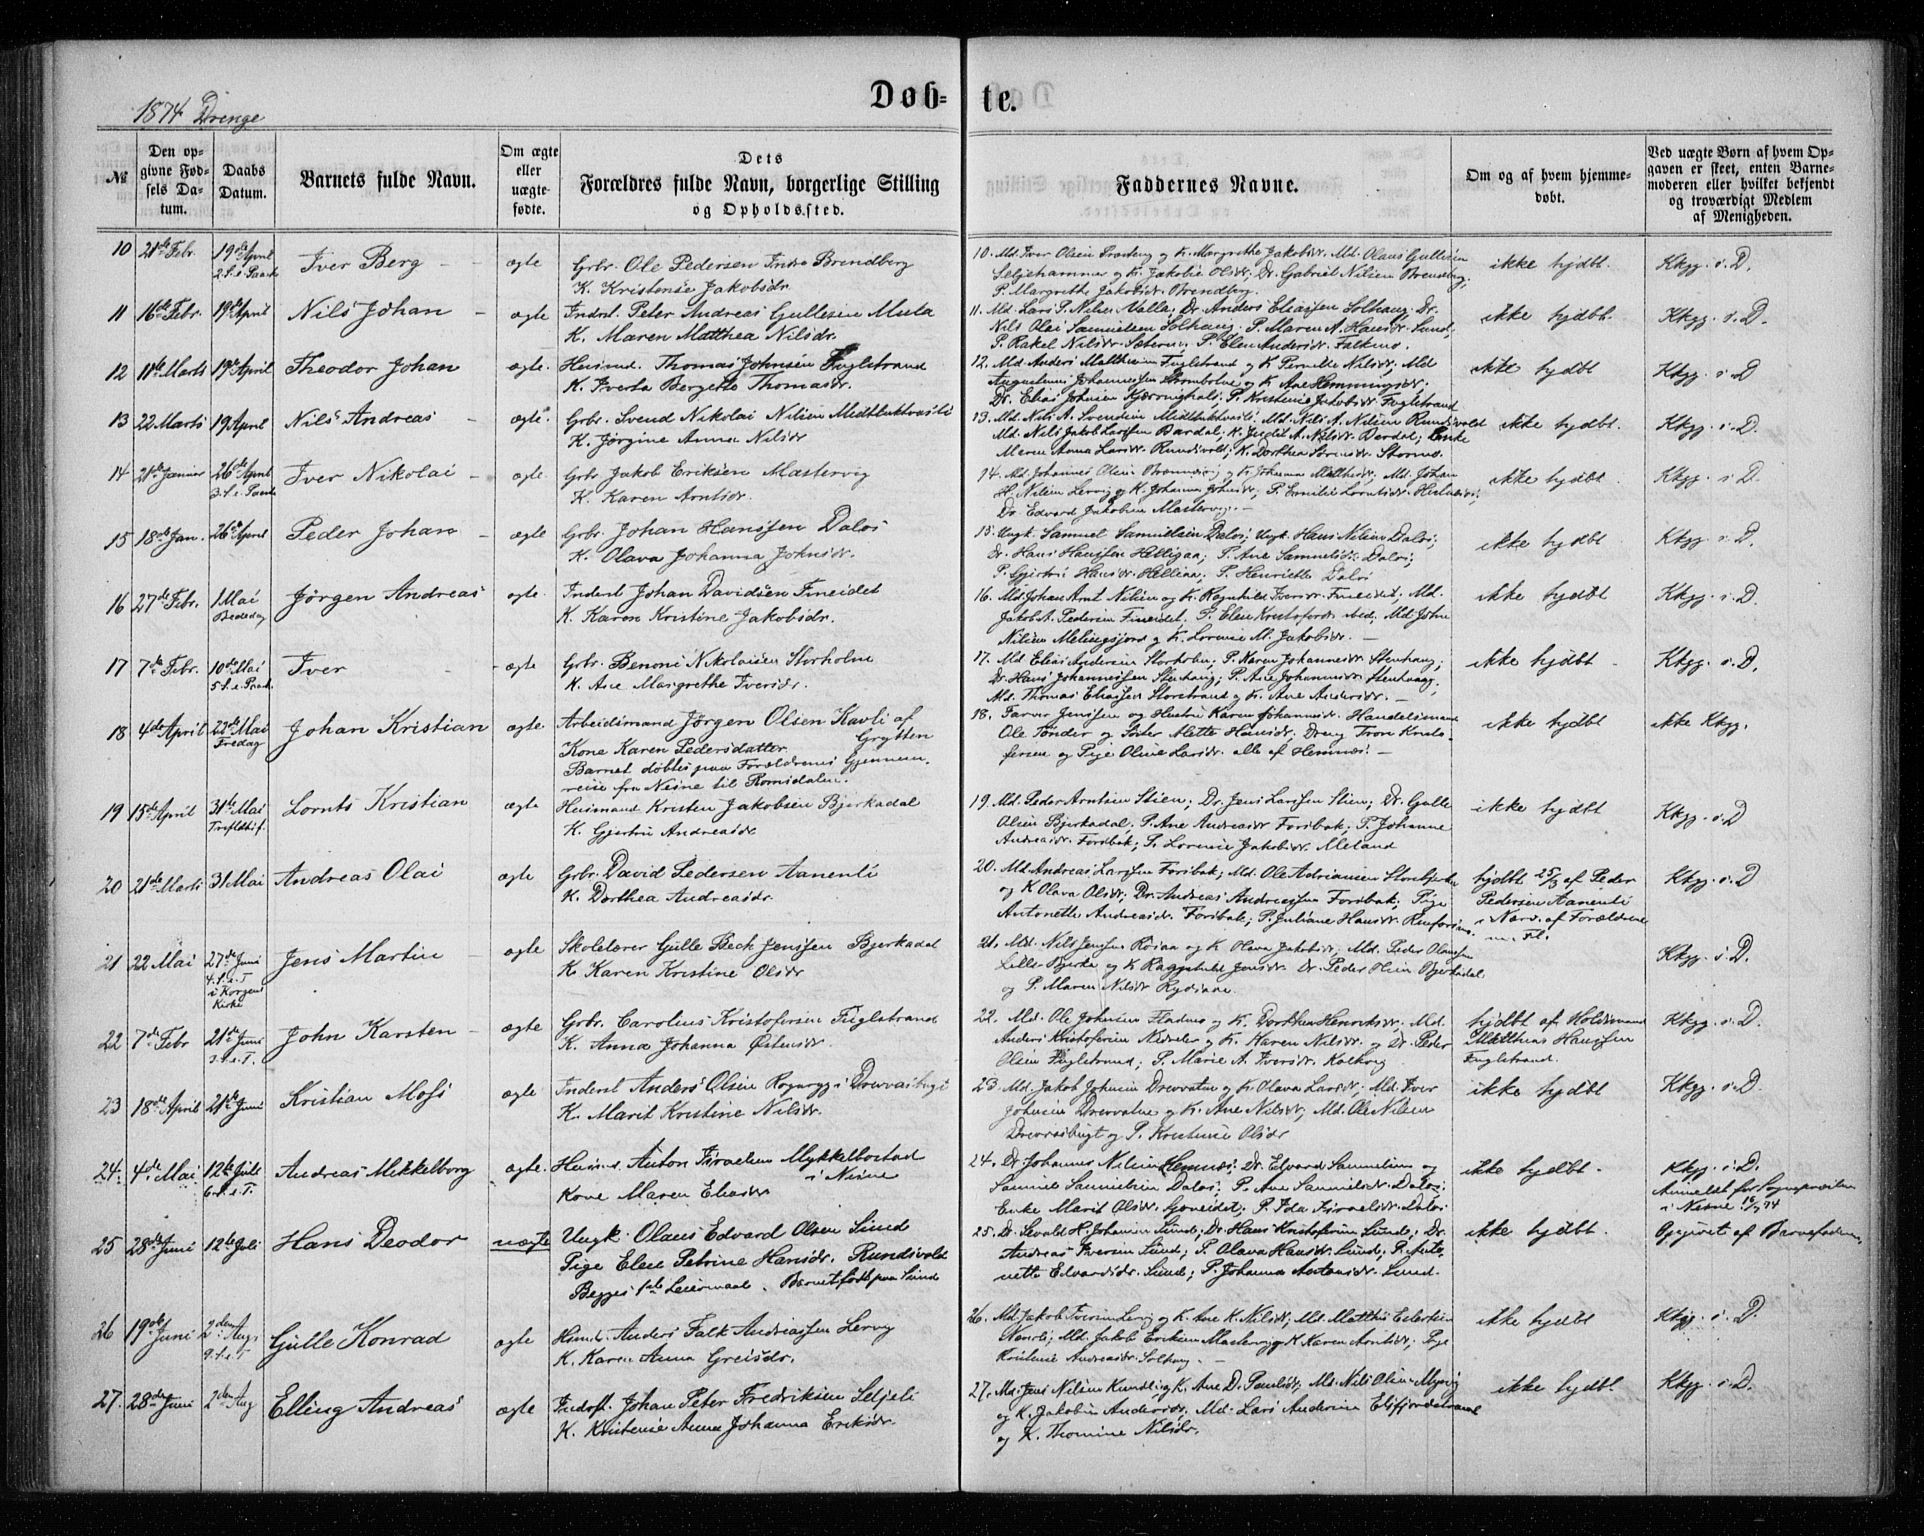 1874 Drenge
Døb-te.
№
Den opgivne Fødsels Datum.
Daabs Datum.
Barnets fulde Navn.
Om ægte eller uægte fødte.
Dets Forældres fulde Navn, borgerlige Stilling og Opholdssted.
Faddernes Navne.
Om og af hvem hjemmedøbt.
Ved uægte Børn af hvem Opgaven er skeet, enten Barnemoderen eller hvilket bekjendt og troværdigt Medlem af Menigheden.
10 21de Febr. 19de April Iver Berg ægte Grbr. Ole Pedersen Indre Brendberg
K. Kristense Jakobsdr.
10. Md. Iver Olsen K. Margrethe Jakobsdr. Md. Olaus Gullesen
Seljehammer og K. Jakobie Olsdr. Dr. Gabriel Nilsen Brendberg,
P. Margrethe Jakobsdr. Brendberg.
ikke hjdbt. Kkgg. s. D.
11 16de Febr. 19de April Nils Johan ægte Inderst Peter Andreas Gullesen Mula
K. Maren Matthea Nilsdr.
11. Md. Lars P. Nilsen Valla, Dr. Anders Eliassen Solhaug, Dr.
Nils Olai Samuelsen Solhaug. P. Maren A. Hansdr. Lund,
P. Rakel Nilsdr. Sæteren. P. Elen Andersdr. Falkmo.
ikke hjdbt. Kkgg. s. D.
12 11te Marts 19de April Theodor Johan ægte. Husmd. Thomas Johnsen Fuglstrand
K. Iverta Bergette Thomasdr.
12. Md. Anders Matthisen Fuglstrand og K. Pernille Nilsdr, Md
Augustinus Johannessen og K. Ane Hemmingsdr.
Dr. Elias Johnsen P. Kristense Jakobsdr. Fuglstrand
ikke hjdbt Kkgg. s. D
13 22 Marts 19 April Nils Andreas ægte. Grbr. Svend Nikolai Nilsen
K. Jørgine Anna Nilsdr
13. Md. Nils A. Svendsen Md. Nils A. Nilsen Rundsvold
Md. Nils Jakob Larssen Bardal; K. Judit A. Nilsdr. Bardal; Enke
Maren Anna Larsdr. Rundsvold; K. Dorthea
ikke hjdbt. Kkgg. s. D.
14 21de Januar 26de April Iver Nikolai ægte. Grbr Jakob Eriksen Mastervig
K. Karen Arntsdr.
14. Md. Johannes Olsen og K. Johanna Md. Johan
H. Nilsen Lervig og K. Johanna Johnsdr; P. Emilie
Dr. Edvard Jakobsen Mastervig. -
ikke hjdbt. Kkgg. s. D.
15 18de Jan. 26de April Peder Johan ægte Grbr. Johan Hanssen Dalos
K. Olava Johanna Johnsdr.
15. Ungk. Samuel Samuelsen Dalos; Ungk. Hans Nilsen Dalos;
Dr. Hans Hanssen Helligaa; P. Ane Samuelsdr. Dalos;
P. Gjertrü Hansdr. P. Henriette Dalos
ikke hjdbt Kkgg. s. D.
16 27de Febr. 1 Mai Bededag Jørgen Andreas ægte. Inderst Johan Davidsen Fineidet
K. Karen Kristine Jakobsdr.
16. Md. Johan Arnt Nilsen og K. Ragnhild Iversdr. Fineidet, Md.
Jakob A. Pedersen Fineidet, P. Elen Kristofersdr. ibid. Md. John
Nilsen og K. Lorense M. Jakobsdr. -
ikke hjdbt Kkgg. s. D.
17 7de Febr. 10de Mai Iver ægte Grbr. Benoni Nikolaisen Storholm
K. Ane Margrethe Iversdr.
17. Md. Elias Andersen Storholm; P. Karen Johannesdr. Stenhaug;
Dr. Hans Johannessen Stenhaug; P. Ane Johannesdr. Stenhaug;
Md. Thomas Eliassen Storstrand og K. Ane Andersdr. -
ikke hjdbt Kkgg. s. D.
18 4de April Mai Fredag Johan Kristian ægte Arbeidsmand Jörgen Olsen Kavli af
Grytten
Kone Karen Pedersdatter.
Barnet døbtes paa Forældrenes Gjennem-
reise fra Nesne til Romsdalen.
18. Farver Jenssen og Hustru Karen Johannesdr. Handelsmand
Ole Tønder og Søster Alette Hansdr; Dreng Tron Kristo-
fersen og Pige Oline Larsdr. alle af Hemnæs. -
ikke hjdbt ikke Kkgg.
19 15de April 31te Mai Lornts Kristian ægte Husmand Kristen Jakobsen Bjerkadal
K. Gjertru Andreasdr.
19. Md. Peder Arntsen Stien; Dr. Jens Larssen Stien; Dr. Gulle
Olsen Bjerkadal, P. Ane Andreasdr Forsbak, P. Johanne
Andreasdr. Forsbak; P. Lorense Jakobsdr. Meland
ikke hjdbt Kkgg. s. D
20 21de Marts 31 Mai Andreas Olai ægte Grbr. David Pedersen Aanenli
K. Dorthea Andreasdr.
20. Md. Andreas Larssen Forsbak; Md. Ole Adriansen Storebjerka
og K Olava Olsdr; Dr. Andreas Andreassen Forsbak; Pige
Antonette Andreasdr. Forsbak; P. Juliane Hansdr.
hjdbt 25/3 af Peder
Pedersen Aanenli
i Nærv. af Forældrene
m. Fl.
Kkgg. s. D
21 22 Mai 27de Juni 4. S. e. T i Korgens Kirke Jens Martin ægte Skolelærer Gulle Bech Jenssen Bjerkadal
K. Karen Kristine Olsdr
21. Md. Nils Jenssen Røsaa og K. Olava Jakobsdr, Md. Peder Olaussen
Lille-Bjerke og K Ragnhild Jensdr. Dr. Peder Hein Bjerkadal
og P. Maren Nilsdr Rydsaae.
Kkgg. s. D.
22 7de Febr 21de Juni 3. S. e. T. John Karsten ægte Grbr. Carolius Kristofersen Fuglstrand
K. Anna Johanna Östensdr.
22. Md. Ole Johnsen Fladmo og K. Dorthea Henriksdr. Md.
Anders Kristofersen og K. Karen Nilsdr. og Dr. Peder
Olsen Fuglstrand; P. Marie A. Iversdr.
hjdbt af Holdsmand
Matthias Hanssen
Fuglstrand.
Kkgg. s. D.
23 18de April 21de Juni Kristian Moss ægte Inderst Anders Olsen i Drevvasbugt
K. Marit Kristine Nilsdr.
23. Md. Jakob Johnsen Drevvatne og K. Olava Larsdr; Md. Iver
Johnsen Drevvatne og K. Ane Nilsdr; Md. Ole Nilsen
Drevvasbugt og P. Kristense Olsdr
ikke hjdbt Kkgg. s. D.
24. 4de Mai 12te Juli 6. S. e. T. Andreas Mikkelborg ægte. Husmd. Anton Israelsen Mykkelbostad
i Nesne
Kone Maren Eliasdr
24. Dr. Johannes Nilsen Hemnæs; Dr. Edvard Samuelsen og
Samuel Samuelsen Dalos; P. Ane Samuelsdr. Dalos;
Enke Marit Olsdr. P. Ida Israelsdr. Dalos
ikke hjdbt. Kkgg. s. D.
Anmeldt for Sognepræsten
i Nesne 16/7 74
25 28de Juni 12te Juli Hans Deodor uægte Ungk. Olaus Edvard Olsen Sund
Pige Elen Petrine Hansdr. Rundsvold
Begges 1ste Leiermaal. Barnet født paa Sund
25. Dr. Sevald H. Johansen Sund; Dr. Hans Kristofersen Sund; Dr.
Andreas Iversen Sund; P. Olava Hansdr Sund. P. Anto-
nette Edvardsdr. Sund; P. Johanna Antonsdr. Sund.
ikke hjdbt. Opgivet af Barnefaderen
26 19de Juni 2den Aug. 9. S. e. T Gulle Konrad ægte Husmd. Anders Falk Andreassen Lervig
K. Karen Anna Greisdr.
26. Md. Jakob Iversen Lervig og K. Ane K. Nilsdr; Md. Matthis
Md. Jakob Eriksen Mastervig og K Karen Arntsdr; Pige
Kristense Andreasdr. Solhaug. -
ikke hjdbt Kkgg. s. D.
27. 28de Juni 2den Aug Elling Andreas ægte Inderst. Johan Peter Fredriksen Seljeli
K. Kristense Anna Johanna Eriksdr.
27. Md. Jens Nilsen og K. Ane D. Paulsdr; Md. Nils Olsen
og K. Jakobin Andersdr, Md. Lars Andersen Elsfjordstrand
og K. Thomine Nilsdr.
ikke hjdbt. Kkgg. s. D.